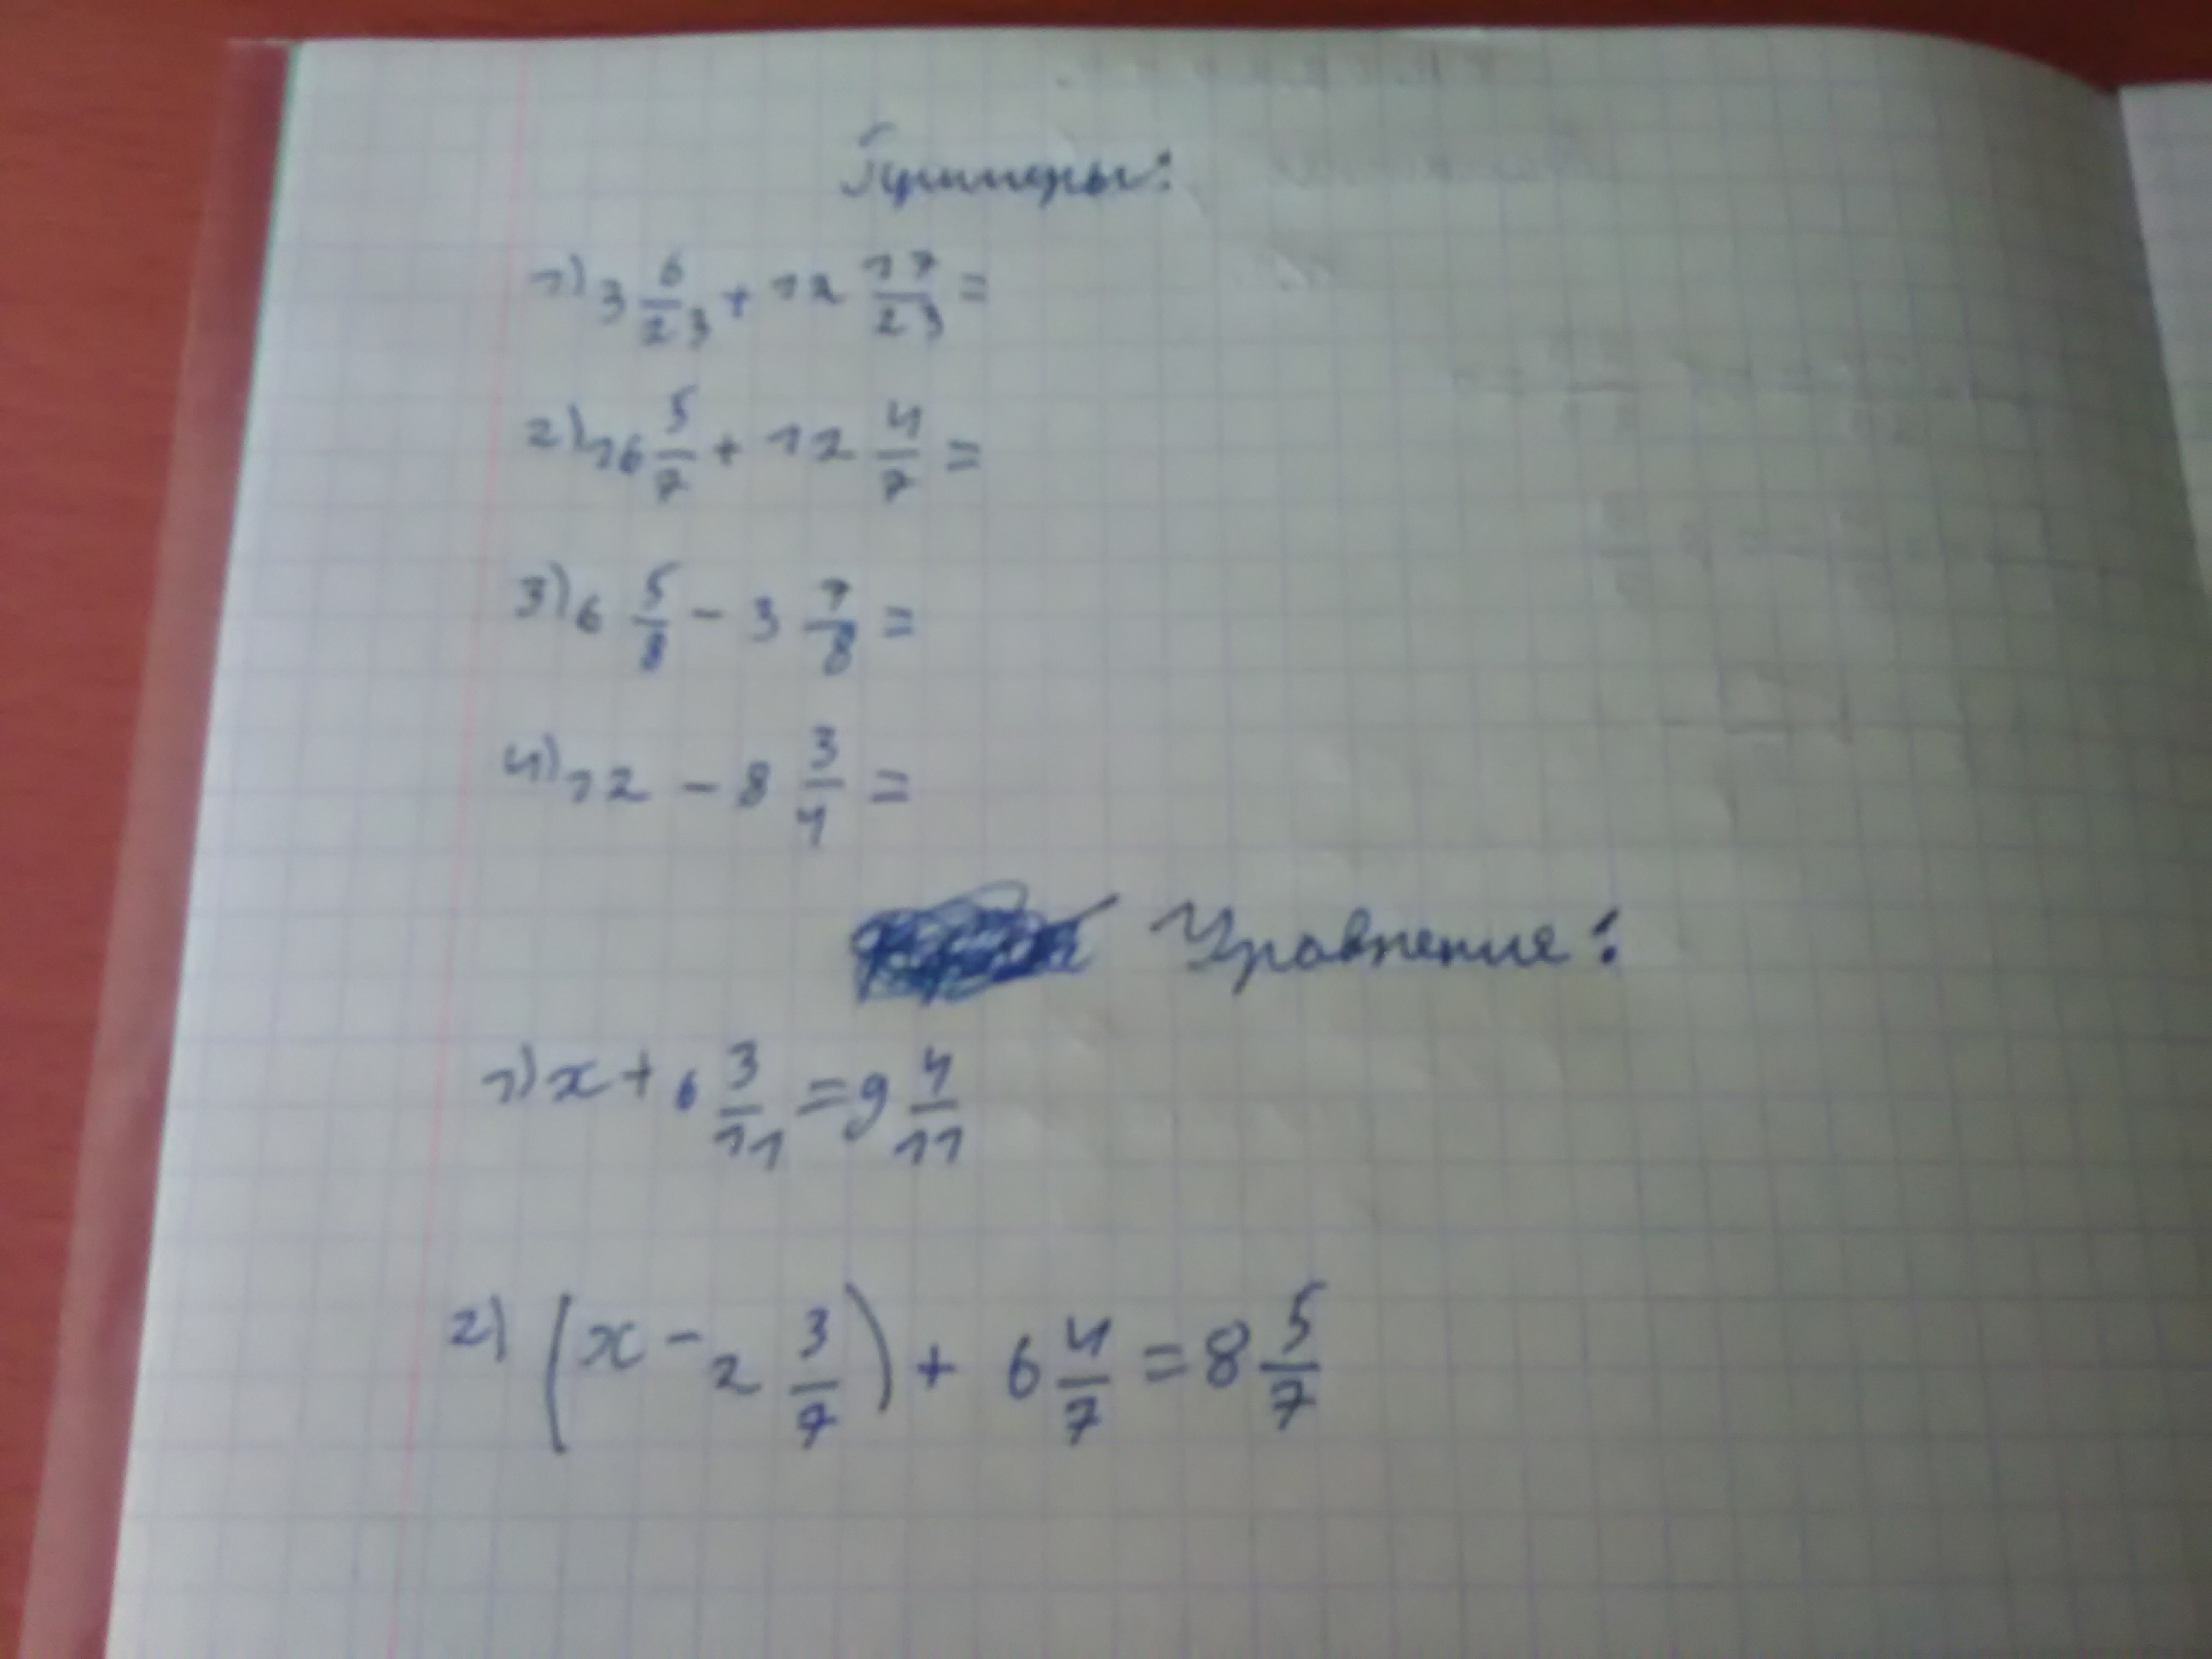 Примеры:
1) 3 6/23 + 12 17/23 =
2) 16 5/7 + 12 4/7 =
3) 6 5/8 - 3 7/8 =
4) 12 - 8 3/4 =
Уравнения:
1) x + 6 3/11 = 9 4/11
2) (x - 2 3/7) + 6 4/7 = 8 5/7